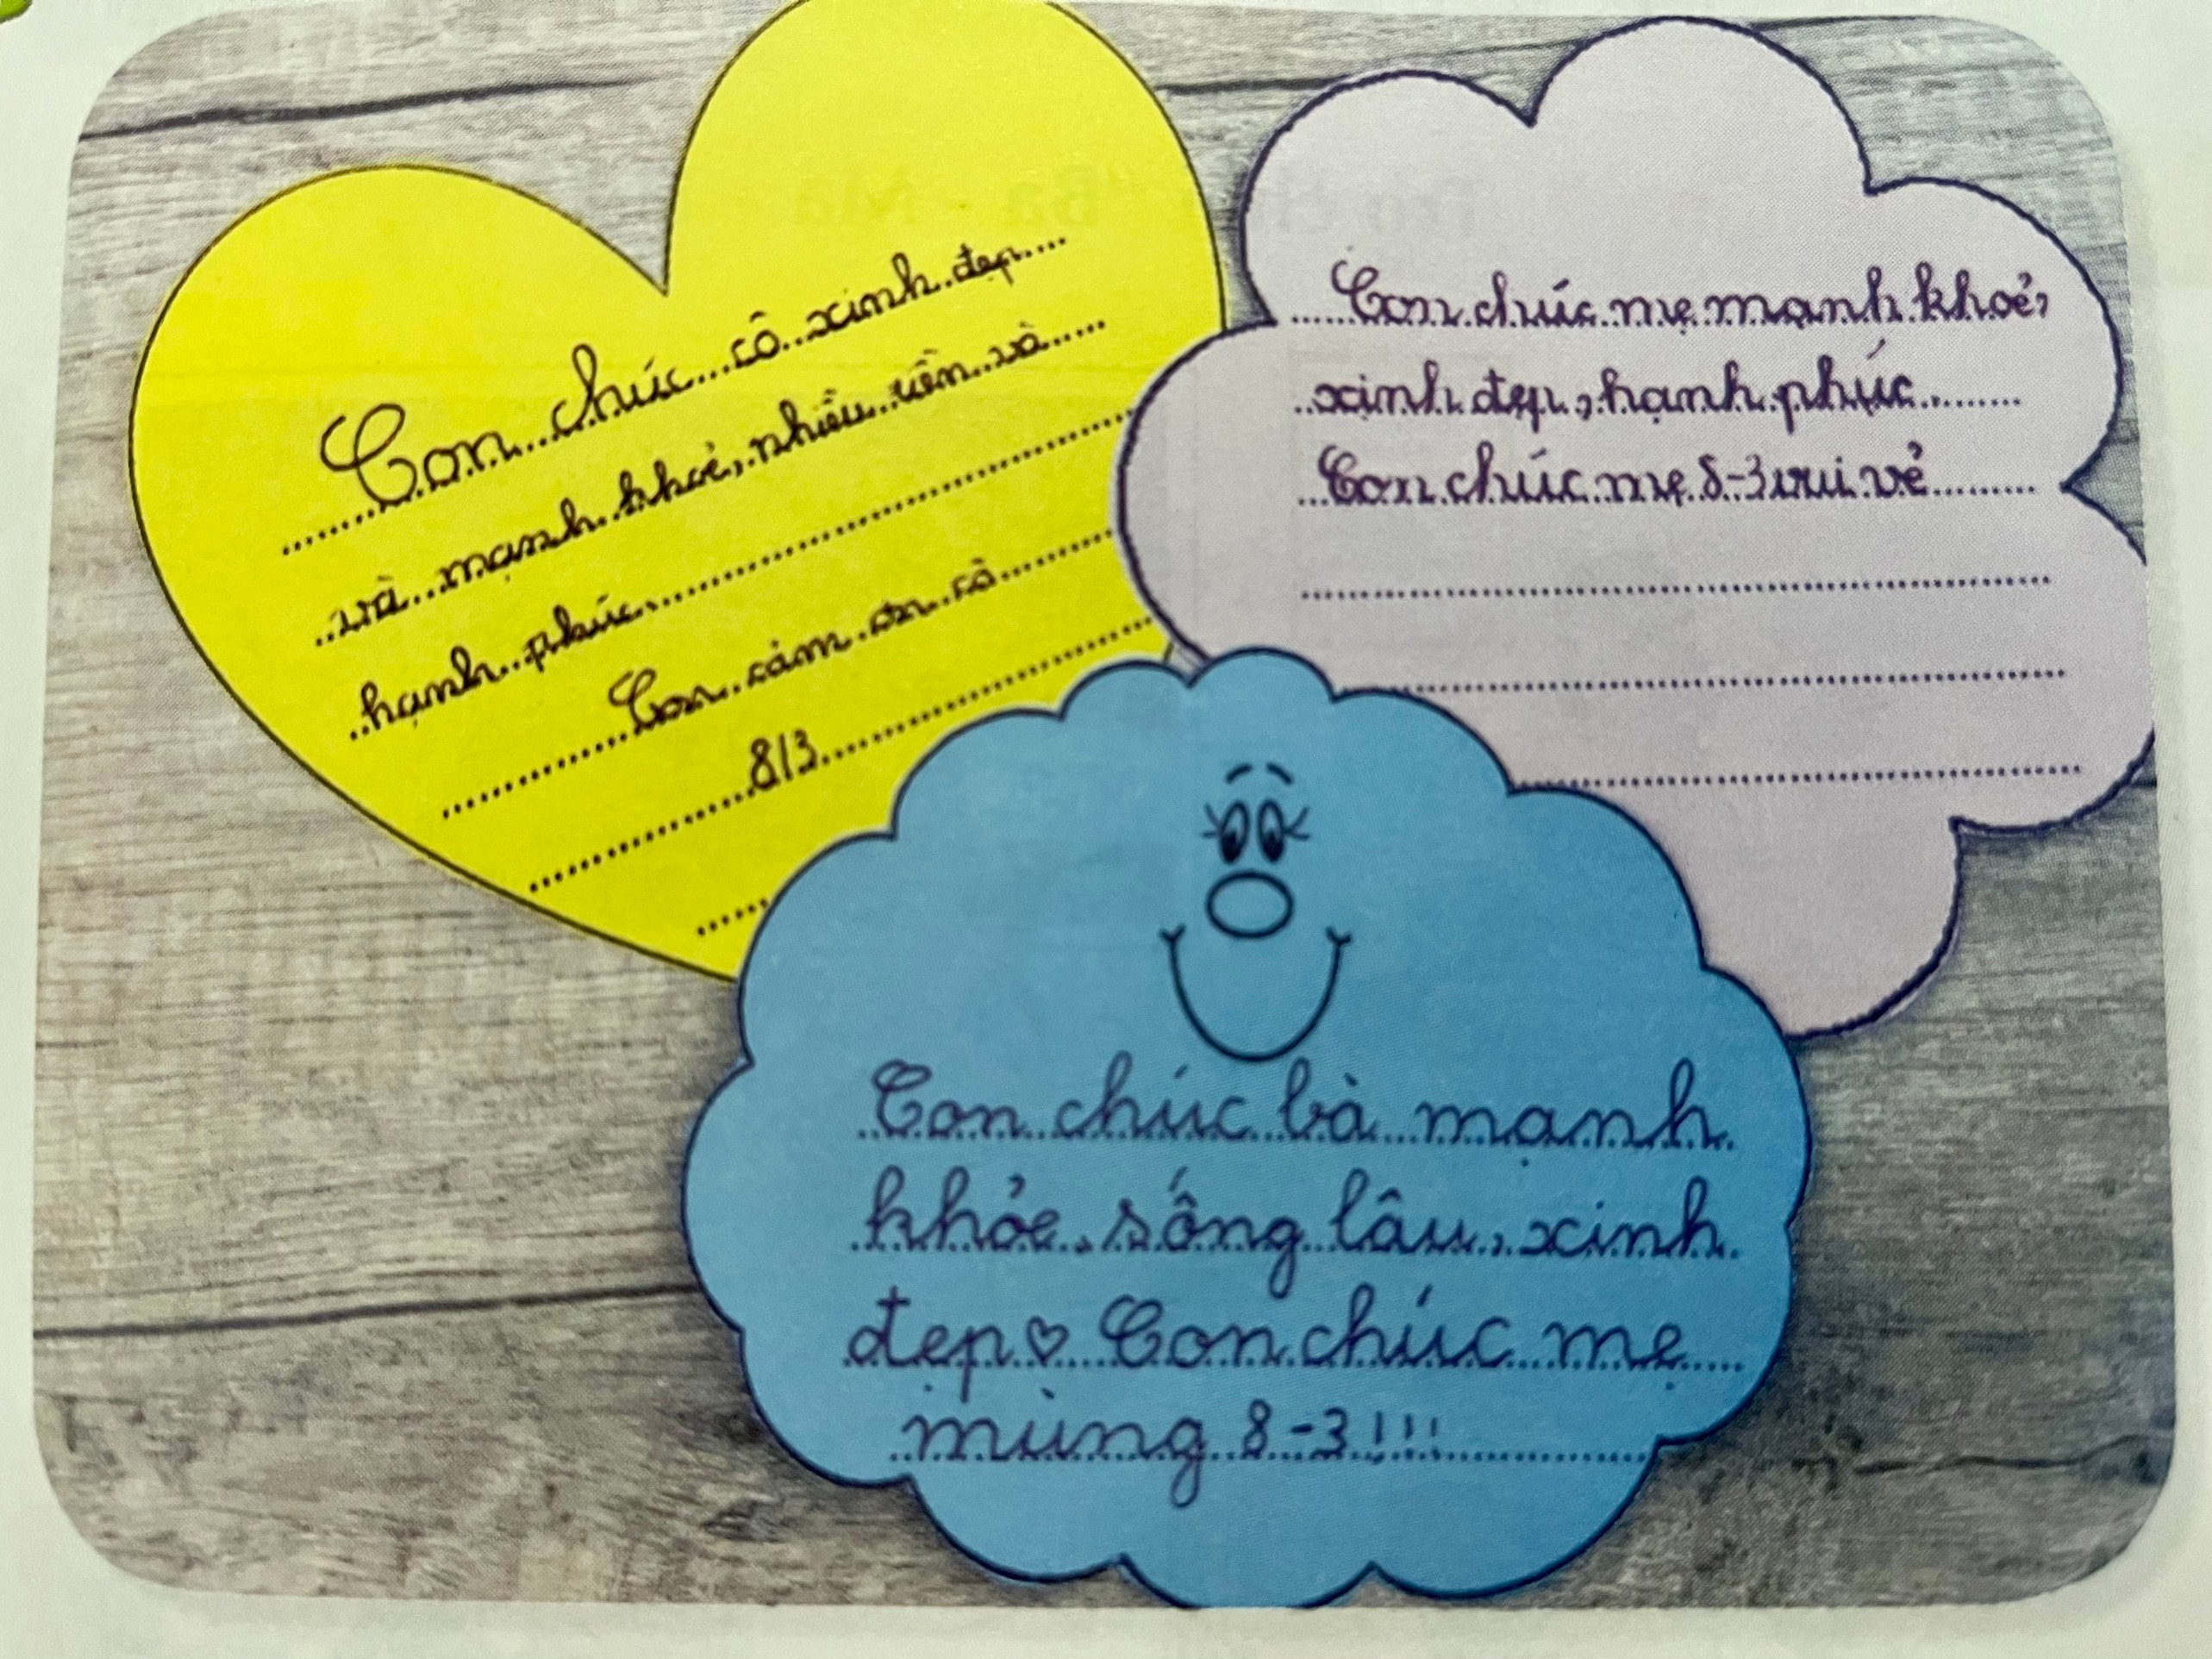 Con chúc cô xinh đẹp
và mạnh khoẻ, nhiều tiền và
hạnh phúc.
Con cảm ơn cô
8/3
Con chúc mẹ mạnh khoẻ,
xinh đẹp, hạnh phúc.
Con chúc mẹ 8-3 vui vẻ
Con chúc bà mạnh
khỏe, sống lâu, xinh
đẹp♡ Con chúc mẹ
mừng 8-3!!!